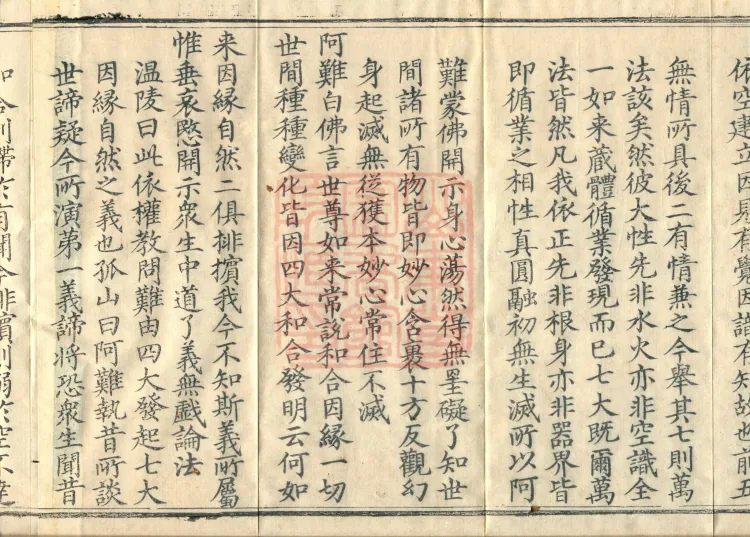 依空建立因見有覺因識有知故也前五
無情所具後二有情兼之今舉其七則萬
法該矣然彼大性先非水火亦非空識全
一如来蔵體循業發現而已七大既爾萬
法皆然凡我依正先非根身亦非器界皆
即循業之相性真圓融初無生滅所以阿
難蒙佛開示身心蕩然得無罣礙了知世
間諸所有物皆即妙心含裹十方反觀幻
身起滅無從獲本妙心常住不滅
阿難白佛言世尊如来常説和合因縁一切
世間種種變化皆因四大和合發明云何如
来因縁自然二俱排擯我今不知斯義所屬
惟垂哀愍開示衆生中道了義無戲論法
温陵曰此依權教問難由四大發起七大
因縁自然之義也孤山曰阿難執昔所談
世諦疑今所演第一義諦將恐衆生聞昔
和合則滯於有聞今非擯則溺於空不達